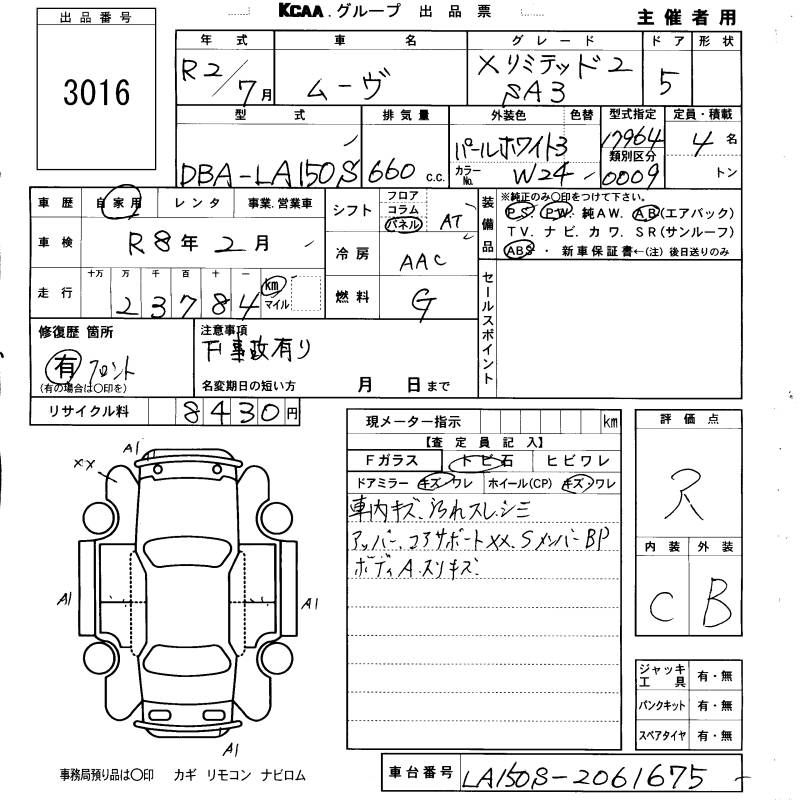 KCAA.グループ 出品票
主催者用
出品番号
3016
年式 車名 グレード ドア 形状
R2/7月 ムーヴ Xリミテッド2 SA3 5
型式 排気量 外装色 色替 型式指定 定員・積載
DBA-LA150S 660 c.c. パールホワイト3 17964 4名
カラーNo. W24 類別区分 0009 トン
車歴 自家用 レンタ 事業.営業車
車検 R8年2月
走行 十万 万 千 百 十 一
23784 km マイル
シフト フロア コラム パネル AT
冷房 AAC
燃料 G
装備品 ※純正のみ〇印をつけて下さい。
PS. PW. 純AW. AB(エアバック)
TV. ナビ. カワ. SR(サンルーフ)
ABS・新車保証書←(注)後日送りのみ
セールスポイント
修復歴 箇所
有 フロント
(有の場合は〇印を)
注意事項
名変期日の短い方 月 日まで
リサイクル料 8430円
現メーター指示 km
【査定員記入】
Fガラス トビ石 ヒビワレ
ドアミラー キズ・ワレ ホイール(CP) キズ・ワレ
車内キズ、汚れスレ.シミ
アッパー、コアサポートXX.SメンバーBP
ボディA.スリキズ
評価点
R
内装 外装
C B
ジャッキ工具 有・無
パンクキット 有・無
スペアタイヤ 有・無
A1
XX
A1
A1
A1
事務局預り品は〇印 カギ リモコン ナビロム
車台番号 LA150S-2061675